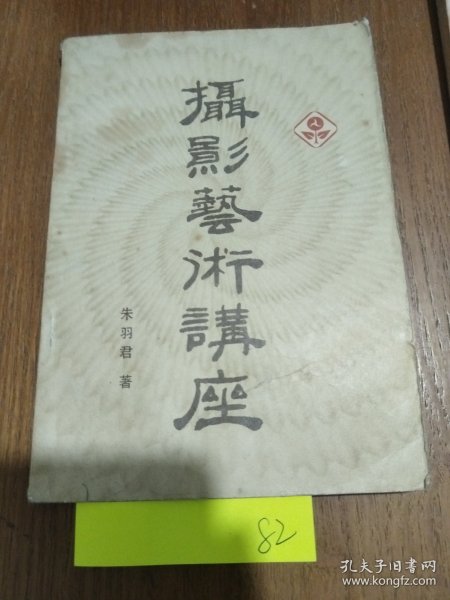 攝影藝術講座
朱羽君 著
82
孔夫子旧书网
www.kongfz.com